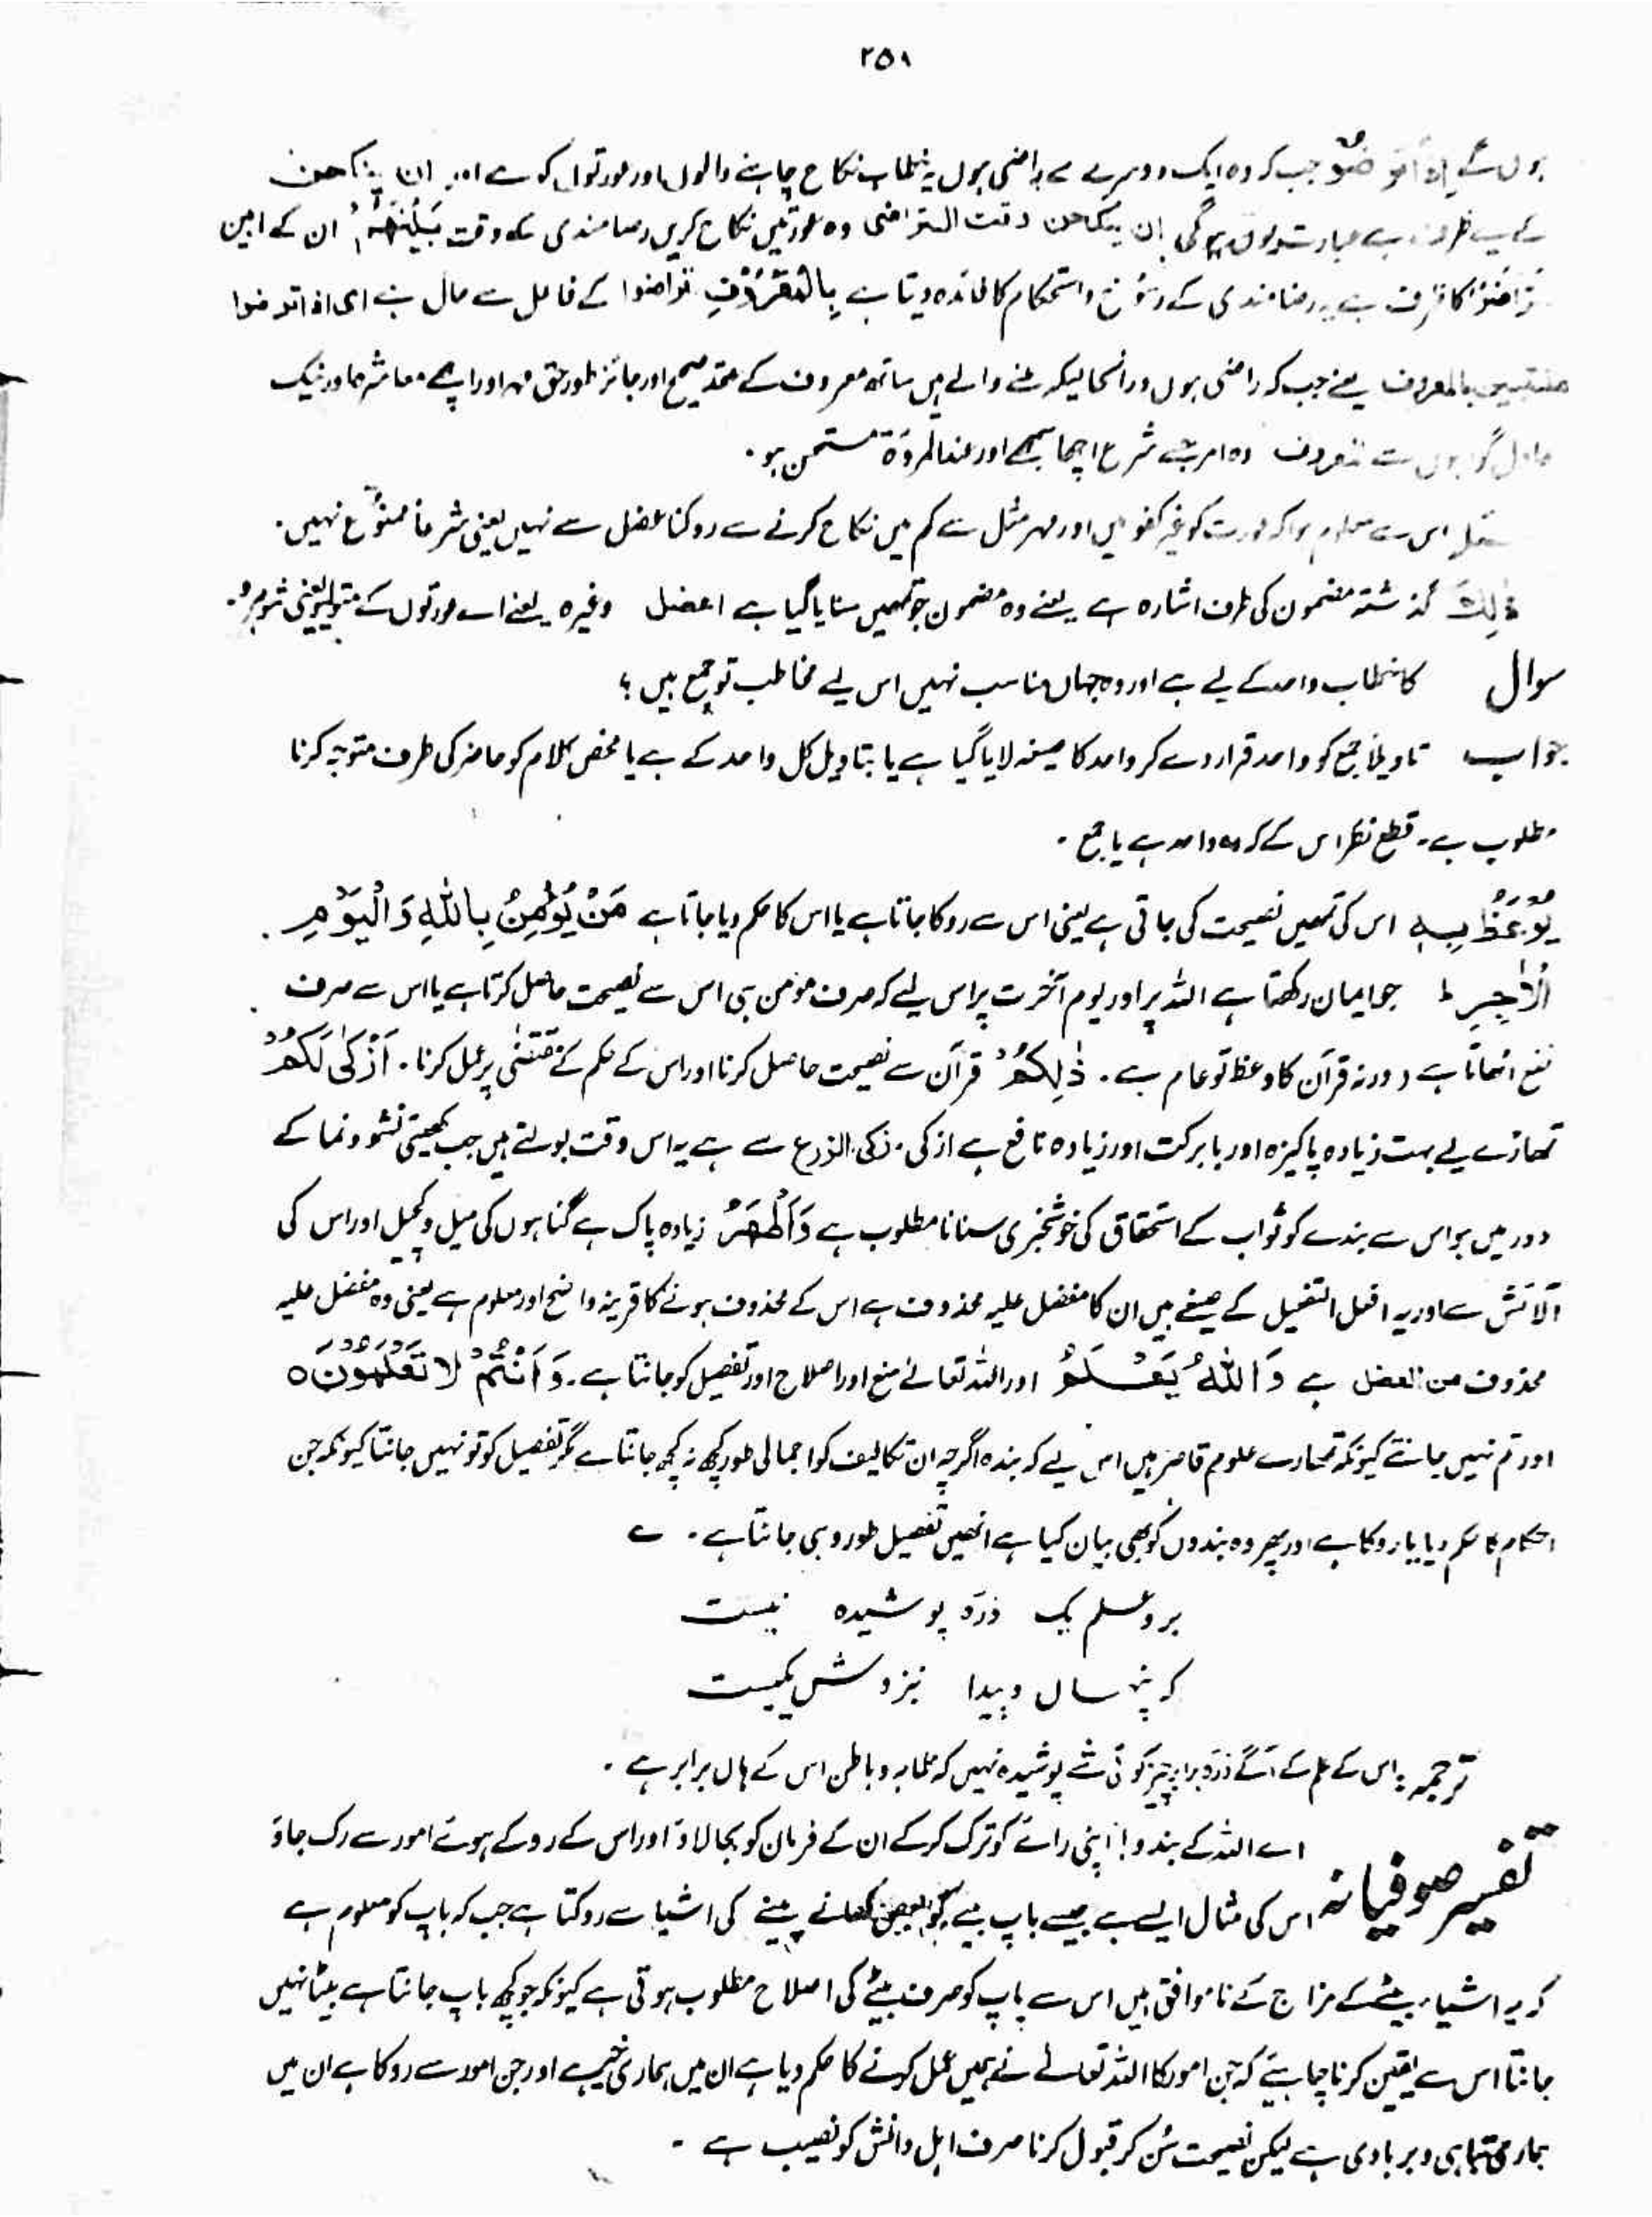 ۲۵۱
ہوں گے إِذَا تَرَاضَوْا جب کہ وہ ایک دوسرے سے راضی ہوں یہ خطاب نکاح چاہنے والوں اور عورتوں کو ہے اور ان ینکحن
کے لیے ظرف ہے عبارت یوں ہوگی ان ینکحن وقت التراضی وہ عورتیں نکاح کریں رضامندی کے وقت بَيْنَهُمْ ان کے مابین
تَرَاضَوْا کا ظرف ہے یہ رضا مندی کے رسوخ و استحکام کا فائدہ دیتا ہے بِالْمَعْرُوفِ تراضوا کے فاعل سے حال ہے ای اذا تراضوا
متلبسین بالمعروف یعنے جب کہ راضی ہوں درانحالیکہ ملنے والے ہیں ساتھ معروف کے عقد صحیح اور جائز طور حق مہر اور اچھے معاشرہ اور نیک
عادل گواہوں سے معروف وہ امر جسے شرع اچھا سمجھے اور عند المروۃ مستحسن ہو۔
اس سے معلوم ہوا کہ عورت کو غیر کفو میں اور مہر مثل سے کم میں نکاح کرنے سے روکنا عضل سے نہیں یعنی شرعاً ممنوع نہیں۔
ذٰلِكَ گذشتہ مضمون کی طرف اشارہ ہے یعنے وہ مضمون جو تمھیں سنایا گیا ہے اعضل وغیرہ یعنے اے عورتوں کے متولیو یعنی شوہرو۔
سوال کا خطاب واحد کے لیے ہے اور وہ جہاں مناسب نہیں اس لیے مخاطب تو جمع ہیں؟
جواب تاویلاً جمع کو واحد قرار دے کر واحد کا صیغہ لایا گیا ہے یا بتاویل کل واحد کے ہے یا محض کلام کو حاضر کی طرف متوجہ کرنا
مطلوب ہے۔ قطع نظر اس کے کہ وہ واحد ہے یا جمع۔
يُوْعَظُ بِهٖ اس کی تمھیں نصیحت کی جاتی ہے یعنی اس سے روکا جاتا ہے یا اس کا حکم دیا جاتا ہے مَنْ يُّؤْمِنُ بِاللّٰهِ وَالْيَوْمِ
الْاٰخِرِ ط جو ایمان رکھتا ہے اللہ پر اور یوم آخرت پر اس لیے کہ صرف مومن ہی اس سے نصیحت حاصل کرتا ہے یا اس سے صرف
نفع اٹھاتا ہے ورنہ قرآن کا وعظ تو عام ہے۔ ذٰلِكُمْ قرآن سے نصیحت حاصل کرنا اور اس کے حکم کے مقتضٰی پر عمل کرنا۔ اَزْكٰى لَكُمْ
تمھارے لیے بہت زیادہ پاکیزہ اور بابرکت اور زیادہ نافع ہے ازکی۔ زکی الزرع سے ہے یہ اس وقت بولتے ہیں جب کھیتی نشو و نما کے
دور میں ہو اس سے بندے کو ثواب کے استحقاق کی خوشخبری سنانا مطلوب ہے وَاَطْهَرُ زیادہ پاک ہے گناہوں کی میل و کچیل اور اس کی
آلائش سے اور یہ افعل التفضیل کے صیغے ہیں ان کا مفضل علیہ محذوف ہے اس کے محذوف ہونے کا قرینہ واضح اور معلوم ہے یعنی وہ مفضل علیہ
محذوف من العضل ہے وَاللّٰهُ يَعْلَمُ اور اللہ تعالےٰ منع اور اصلاح اور تفصیل کو جانتا ہے۔ وَاَنْتُمْ لَا تَعْلَمُوْنَ ہ
اور تم نہیں جانتے کیونکہ تمھارے علوم قاصر ہیں اس لیے کہ بندہ اگرچہ ان تکالیف کو اجمالی طور کچھ نہ کچھ جانتا ہے مگر تفصیل کو تو نہیں جانتا کیونکہ جن
احکام کا حکم دیا یا روکا ہے اور پھر وہ بندوں کو بھی بیان کیا ہے انھیں تفصیل طور وہی جانتا ہے۔ ے
برو علم یک ذرّہ پوشیدہ نیست
کہ پنہاں و پیدا بنزدش یکیست
ترجمہ: اس کے علم کے آگے ذرّہ برابر چیز کوئی شے پوشیدہ نہیں کہ ظاہر و باطن اس کے ہاں برابر ہے۔
تفسیر صوفیانہ اے اللہ کے بندو! اپنی رائے کو ترک کرکے ان کے فرمان کو بجا لاؤ اور اس کے روکے ہوئے امور سے رک جاؤ
اس کی مثال ایسے ہے جیسے باپ بیٹے کو بعض کھانے پینے کی اشیا سے روکتا ہے جب کہ باپ کو معلوم ہے
کہ یہ اشیاء بیٹے کے مزاج کے ناموافق ہیں اس سے باپ کو صرف بیٹے کی اصلاح مطلوب ہوتی ہے کیونکہ جو کچھ باپ جانتا ہے بیٹا نہیں
جانتا اس سے یقین کرنا چاہیئے کہ جن امور کا اللہ تعالےٰ نے ہمیں عمل کرنے کا حکم دیا ہے ان میں ہماری خیر ہے اور جن امور سے روکا ہے ان میں
ہماری تباہی و بربادی ہے لیکن نصیحت سُن کر قبول کرنا صرف اہل دانش کو نصیب ہے۔